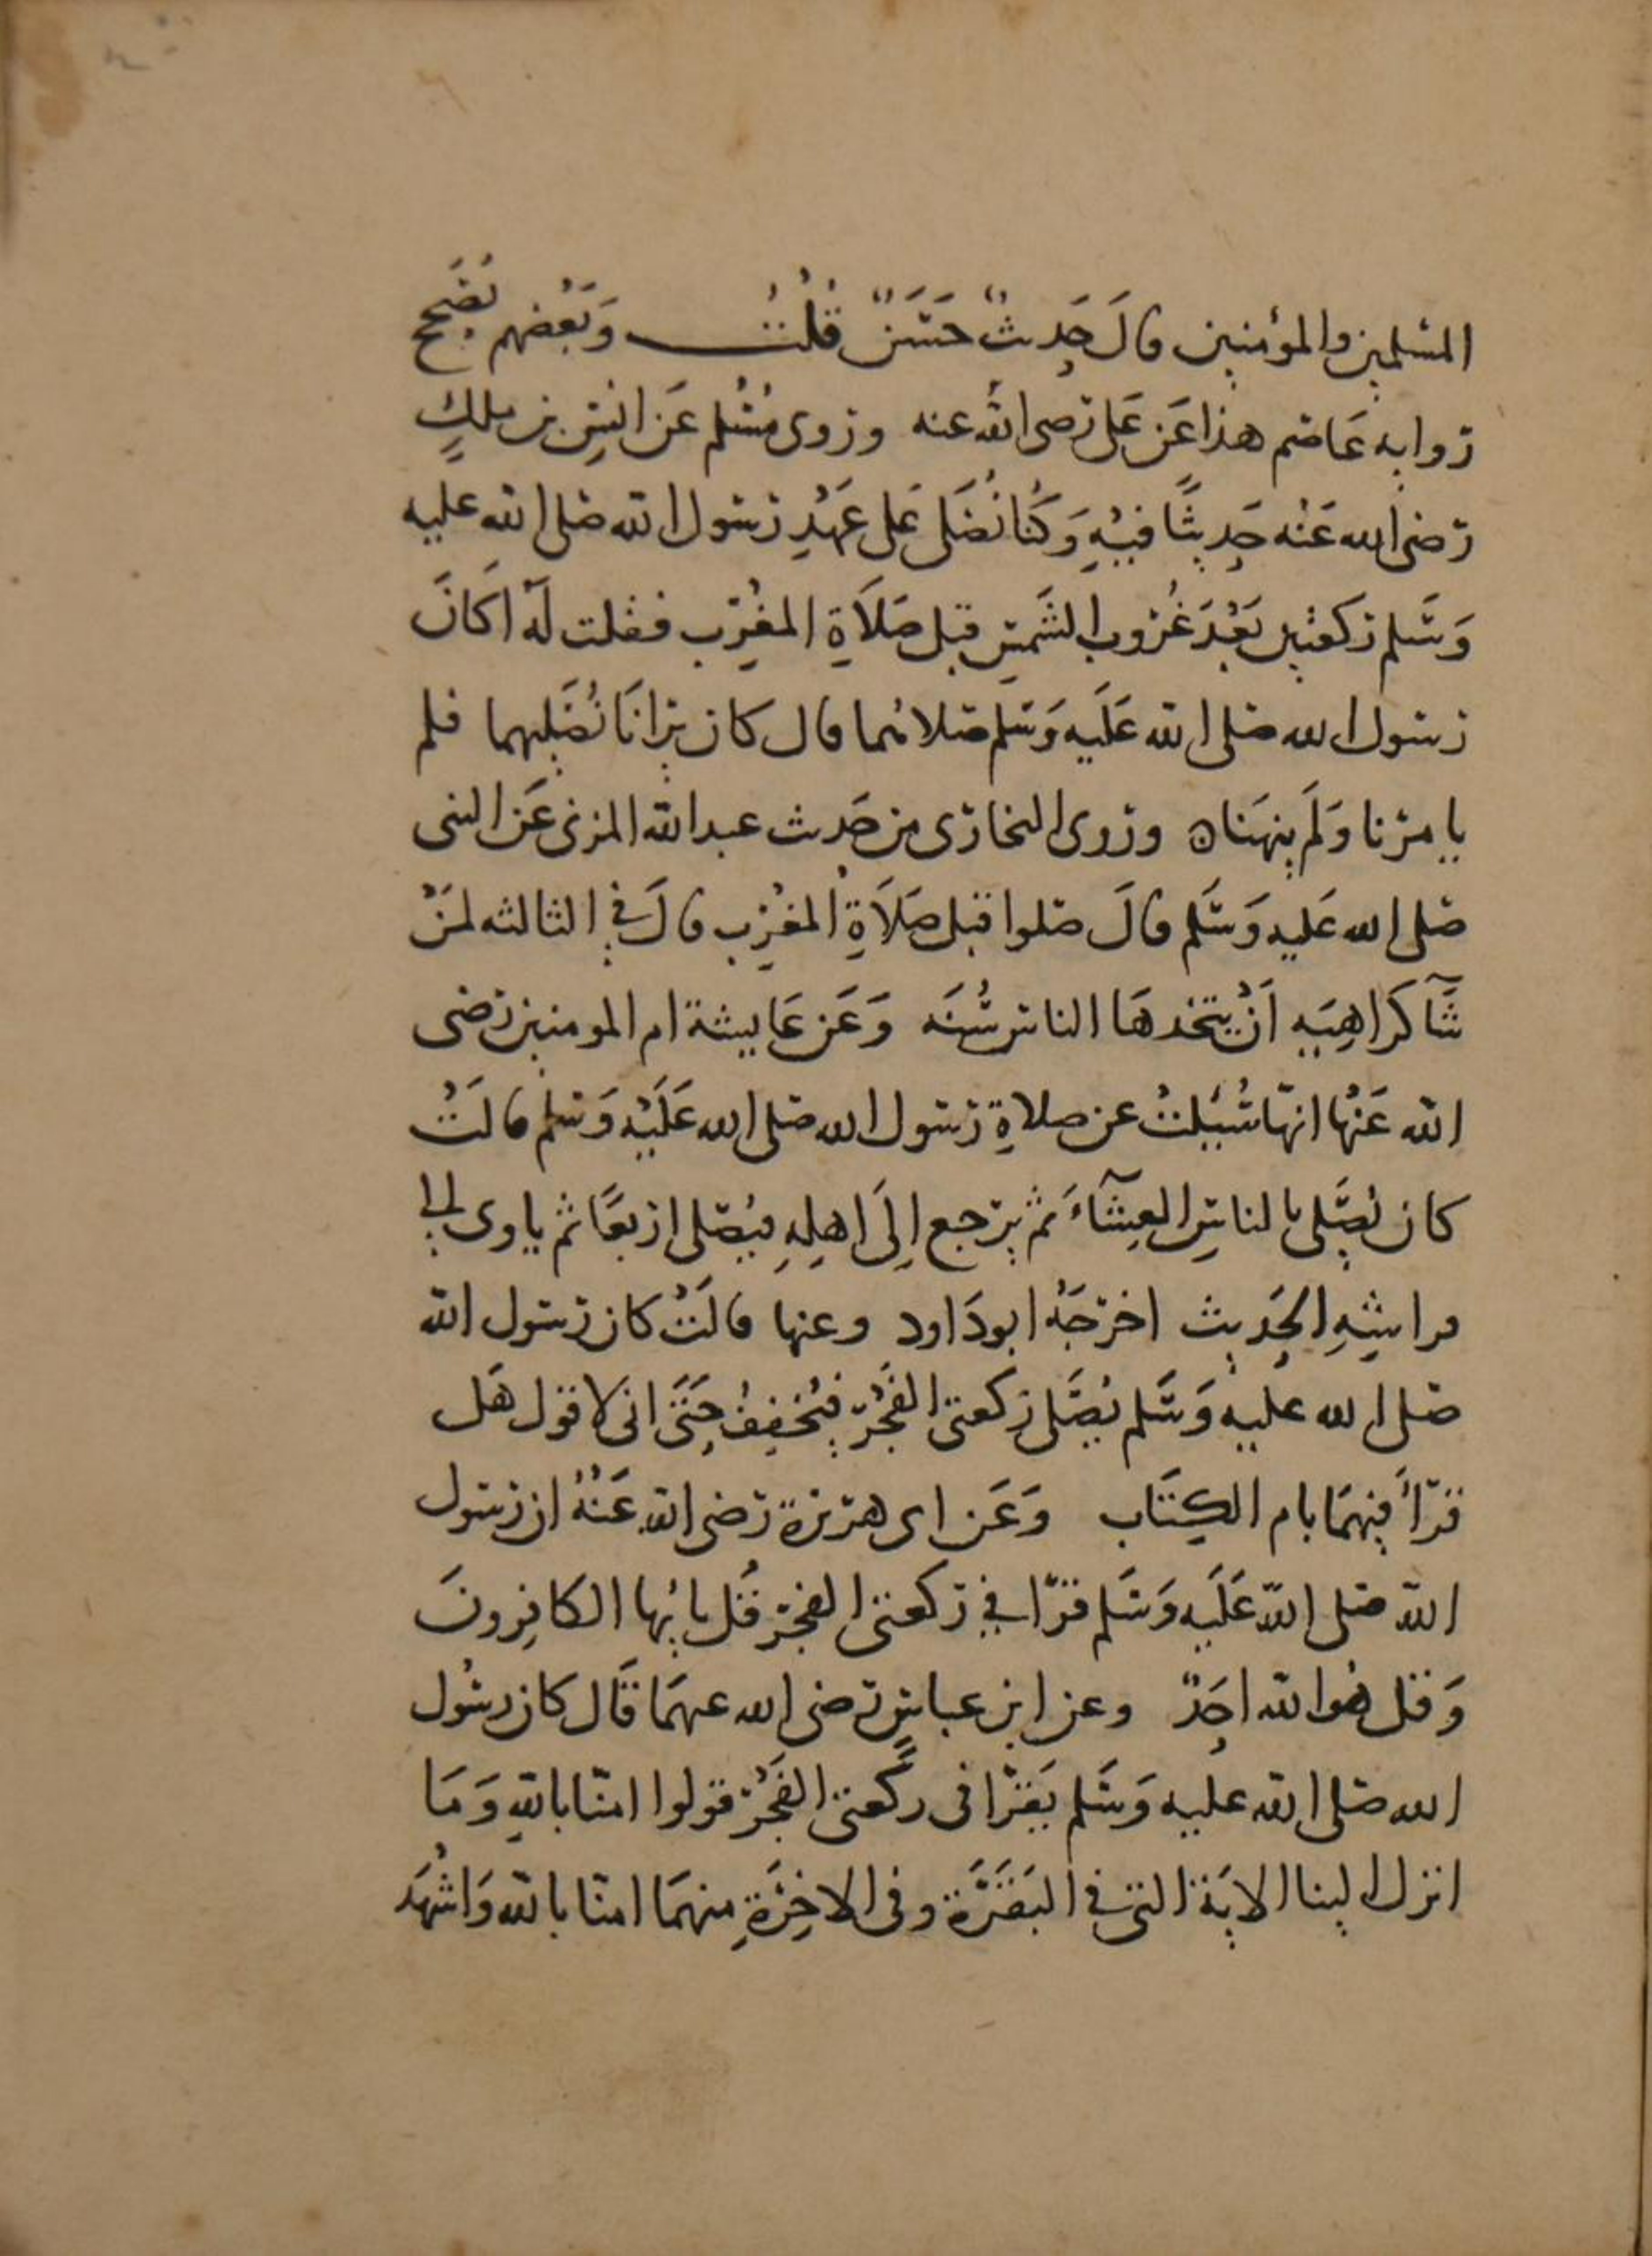 المسلمين والمؤمنين قالَ حَديثٌ حَسَنٌ قُلْتُ وَبَعْضهم يُصَحح
رواية عَاصم هذا عَن عَلى رضى الله عنه وروى مُسْلم عَن انسِ بن ملكٍ
رضى الله عَنْه حَديثًا فيْهِ وَكُنا نُصَلى عَلى عَهْدِ رسول الله صلى الله عليه
وَسَلم ركعتين بَعْدَ غُرُوب الشَمسِ قبل صَلاَةِ المغْرِب فقلت لَهُ اَكَانَ
رسول الله صلى الله عَلَيه وَسَلم صلاهما قال كان يرانَا نُصَليهما فلم
يامرنا وَلَم ينهَنا ه وروى البخارى من حَديث عبد الله المزنى عَن النبى
صلى الله عَليه وَسَلم قالَ صلوا قبل صَلاَةِ المغْرِب قالَ في الثالثه لمَنْ
شَآ كَراهِيَه اَنْ يتخذهَا الناس سُنَه وَعَن عَايشة ام المومنين رضى
الله عَنْها انهّا سُئِلتْ عن صلاةِ رسول الله صلى الله عَلَيْه وَسلم قالَتْ
كان يُصَلى بالناسِ العِشَآءَ ثم يرجع اِلَى اهلِهِ فيُصَلى اربعًا ثم ياوى الى
فراشِهِ الحَديث اخرجَهُ ابو دَاود وعنها قالَتْ كان رسول الله
صلى الله عليه وَسَلم يُصَلى ركعتى الفَجْر فيُخفِفُ حَتَى انى لاقول هَل
قرَأَ فيهمَا بام الكِتَاب وَعَن ابى هريرة رضى الله عَنْهُ ان رسول
الله صلى الله عَلَيه وَسَلم قرَا في ركعتى الفجر قُل يايُها الكافِرونَ
وَقل هُو الله احَدٌ وعن ابن عباسٍ رضى الله عنهمَا قَال كان رسُول
الله صلى الله عليه وَسَلم يَقرَا فى ركَعتى الفَجْر قولوا امنّا باللهِ وَمَا
انزل الينا الايَة التى في البَقَرَة وفى الاخِرَةِ منهمَا امنّا بالله وَاشْهَد